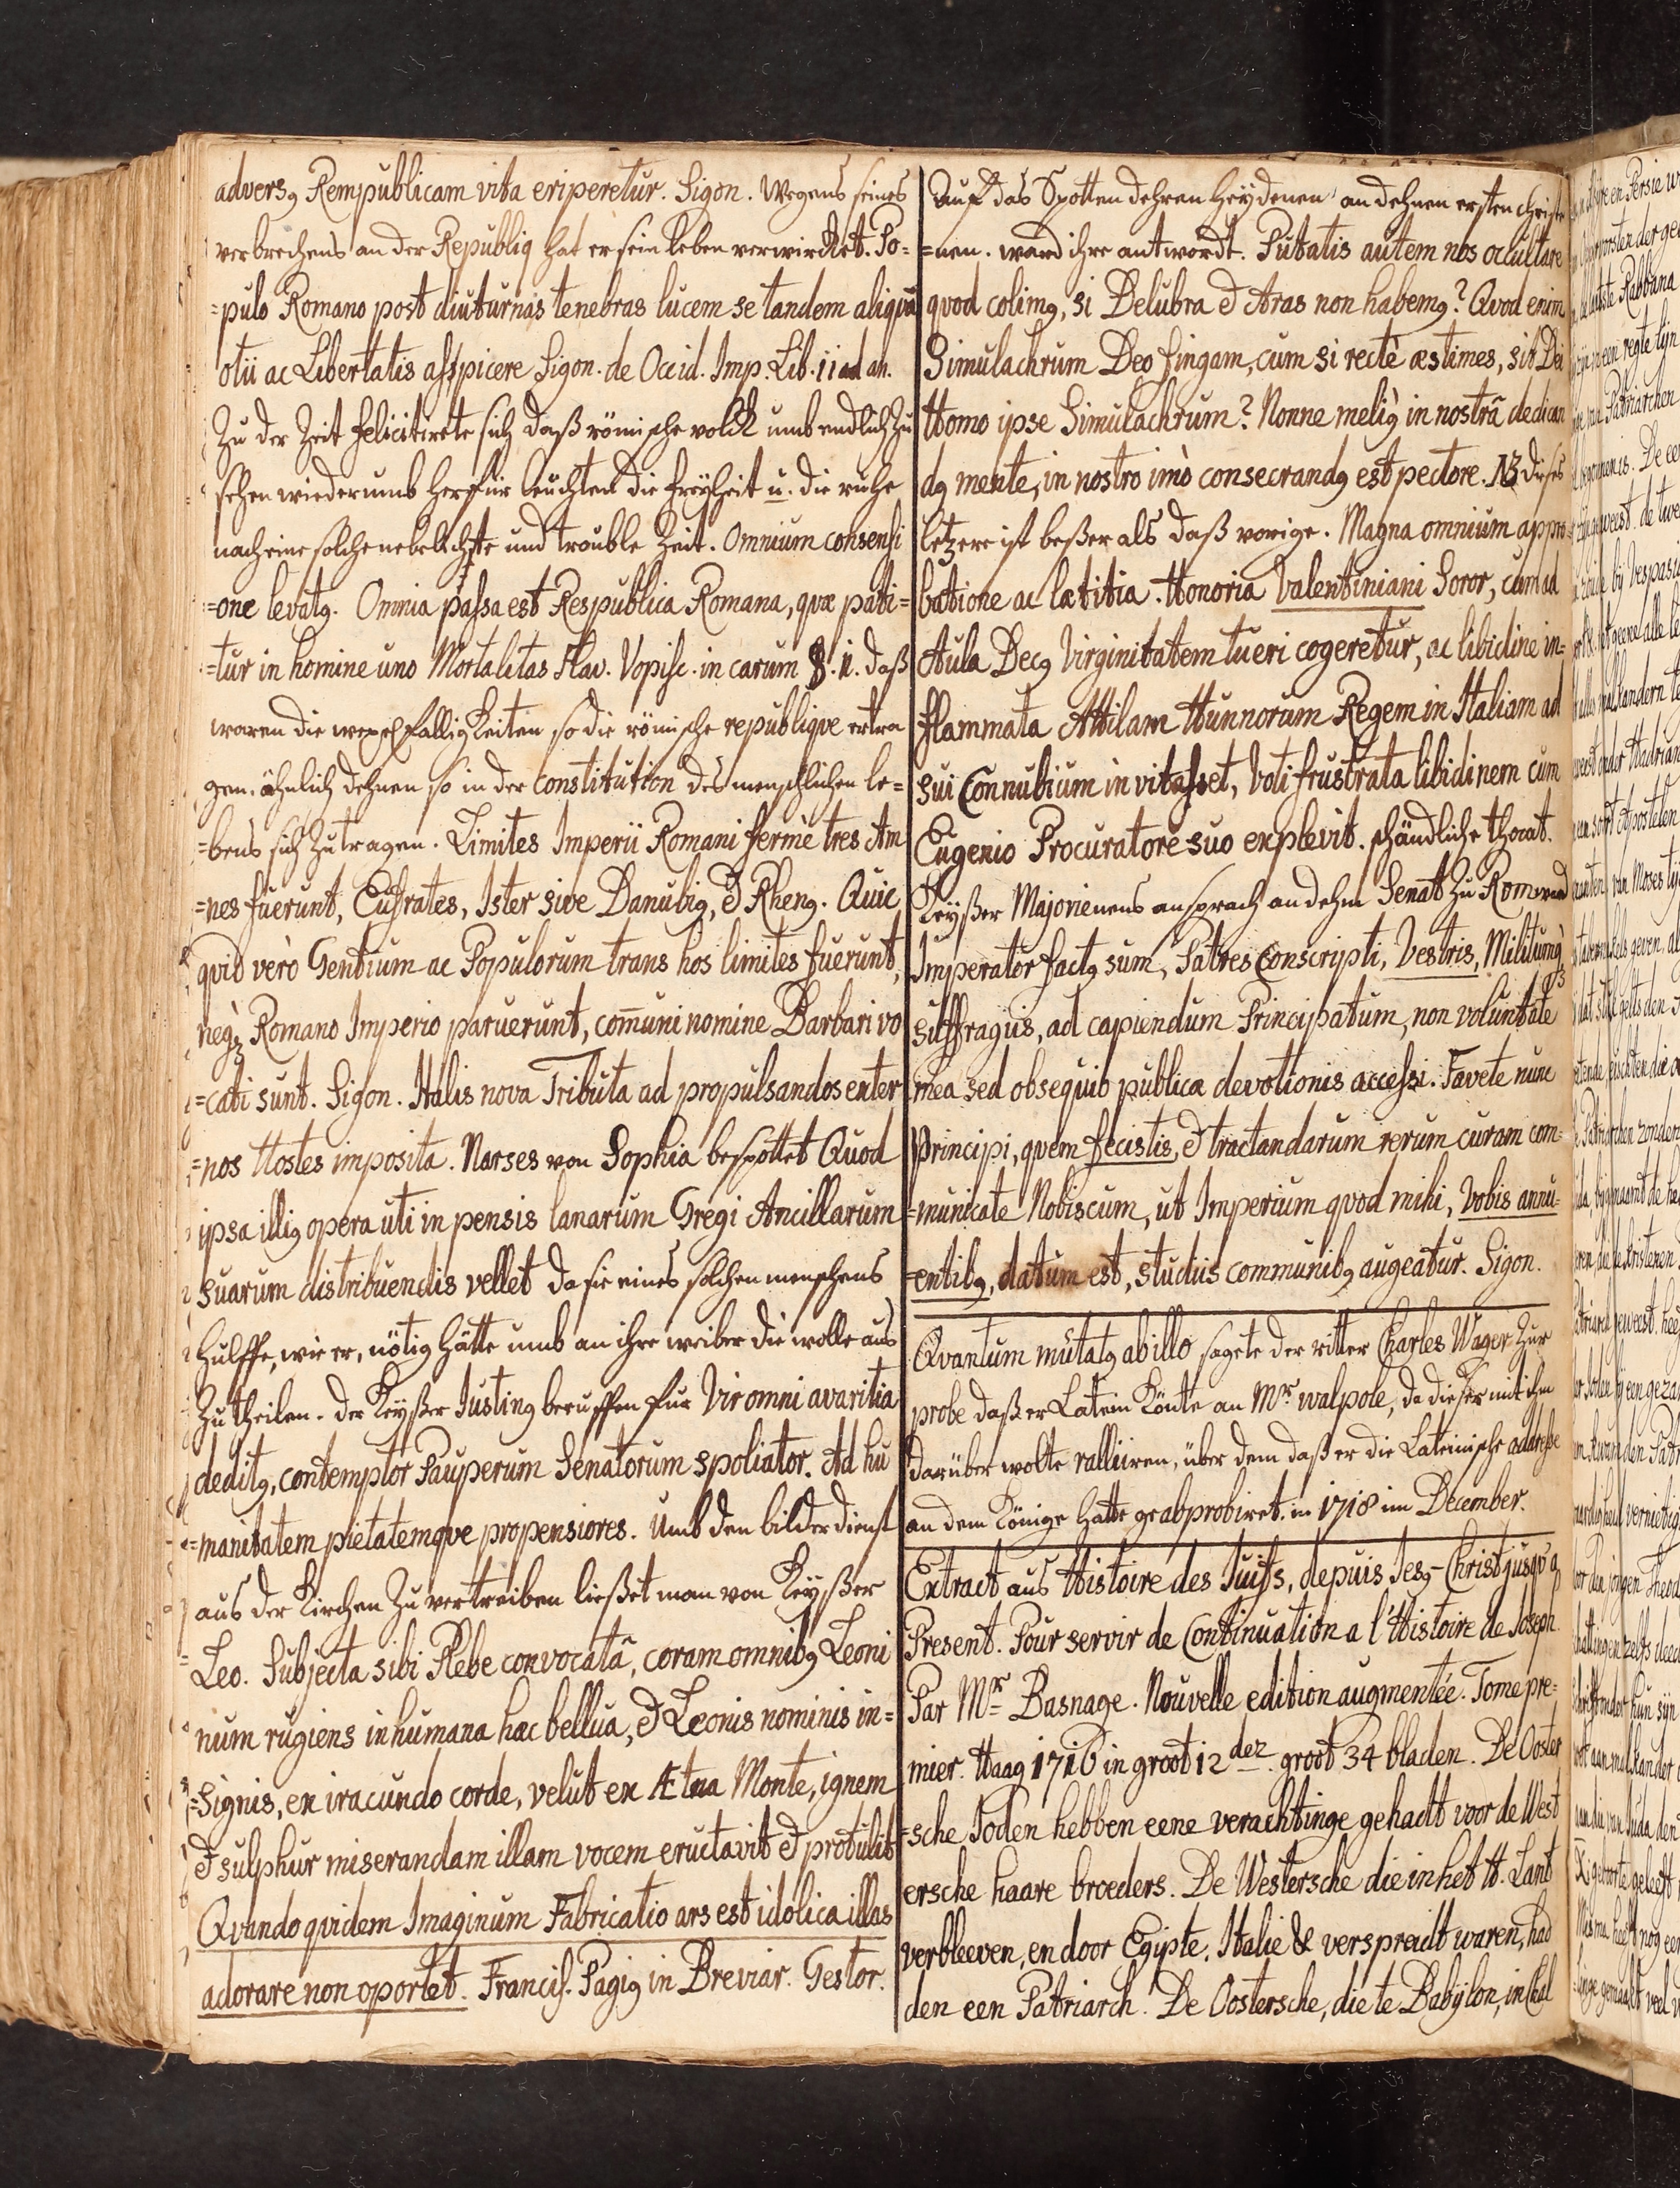 adversꝯ Rempublicam vita eriperetur. Sigon. Wegens seines
verbrechens an der Republiq hat er sein leben verwircket. Po-
=pulo Romano post diuturnas tenebras lucem se tandem aliquã
otii ac Libertatis aspicere Sigon. de Occid. Imp. Lib. 11 ad an.
Zu der Zeit felicitirete sich daß römische volck umb endlich zu
sehen wiederumb herfür leuchten die freyheit u. die ruhe
nach eine solche nebelichste und trouble Zeit. Omnium consensi
=one levatꝯ. Omnia passa est Respublica Romana, quæ pati=
=tur in homine uno Mortalitas Flav. Vopisc. in carum §. 11. daß
waren die wexelfälligkeiten so die römische republique ertra
gen. ähnlich dehnen so in der constitution des menschlichen le=
=bens sich zutragen. Limites Imperii Romani fermè tres Am
=nes fuerunt, Eufrates, Ister sive Danubiꝯ, & Rhenꝯ. Quic
quid verò Gentium ac Populorum trans hos limites fuerunt,
neqȝ Romano Imperio paruerunt, com̄uni nomine Barbari vo
=cati sunt. Sigon. Italis nova Tributa ad propulsandos exter
=nos Hostes imposita. Narses von Sophia bespottet Quod
ipsa illiꝯ opera uti in pensis lanarum Gregi Ancillarum
suarum distribuendis vellet da sie eines solchen menschens
hülffe, wie er, nötig hätte umb an ihre weiber die wolle aus
zu theilen. der Keyßer Justinꝯ beruffen für Vir omni avaritia
deditꝯ, contemptor Pauperum Senatorum spoliator. Ad hu
=manitatem pietatemqve propensiores. Umb den bilder dienst
aus der Kirchen zu vertreiben ließet man von Keyßer
Leo. Subjecta sibi Plebe convocatâ, coram omnibꝯ Leoni
num rugiens inhumana hac bellua, & Leonis nominis in=
=signis, ex iracundo corde, velut ex Ætna Monte, ignem
& sulphur miserandam illam vocem eructavit & protulit
Qvandoqvidem Imaginum Fabricatio ars est idolica illas
adorare non oportet. Francis. Pagiꝯ in Breviar. Gestor.
Auf das Spotten dehren Heydenen an dehnen ersten Christe
=nen. ward ihre antwordt. Putatis autem nos occultare
qvod colimꝯ, si Delubra & Aras non habemꝯ? Qvod enim
Simulachrum Deo fingam, cum si rectè æstimes, sit Dei
Homo ipse Simulachrum? Nonne meliꝯ in nostrâ dedican
dꝯ mente, in nostro imò consecrandꝯ est pectore. NB dieses
letzere ist beßer als daß vorige. Magna omnium appro
batione ac lætitia. Honoria Valentiniani Soror, cum ad
Aula Decꝯ Virginitatem tueri cogeretur, ac libidine in=
flammata Attilam Hunnorum Regem in Italiam ad
sui Connubium invitasset, Voti frustrata libidinem cum
Eugenio Procuratore suo explevit. schändliche thaat.
Keyßer Majorienens ansprach an dehm Senat zu Rom ward
Imperator factꝯ sum, Patres Conscripti, Vestris, Militumqȝ
suffragiis, ad capiendum Principatum, non voluntate
mea sed obsequio publica devotionis accessi. Favete nunc
Principi, qvem fecistis, & tractandarum rerum curam com=
=municate Nobiscum, ut Imperium qvod mihi, Vobis annu=
=entibꝯ, datum est, studiis communibꝯ augeatur. Sigon.
Qvantum mutatꝯ ab illo sagete der ritter Charles Wager zur
probe daß er Latein könte an Mr. walpole, da dieser mit ihm
darüber wolte ralliiren, über dem daß er die Lateinische addresse
an dem Könige hatte geabprobiret. in 1718 im December.
Extract aus Histoire des Juifs, depuis Jesꝯ-Christ jusqv'a
Present. Pour servir de Continuation a l'Histoire de Joseph.
Par Mr. Basnage. Nouvelle edition augmentée. Tome pre=
mier. Haag 1716 in groot 12 dez. groot 34 bladen. De Ooster
=sche Joden hebben eene verachtinge gehadt voor de West
ersche haare broeders. De Westersche die in het H. Lant
verbleeven, en door Egipte, Italië & verspreidt waren, had
den een Patriarch. De Oostersche, die te Babylon, in Chal